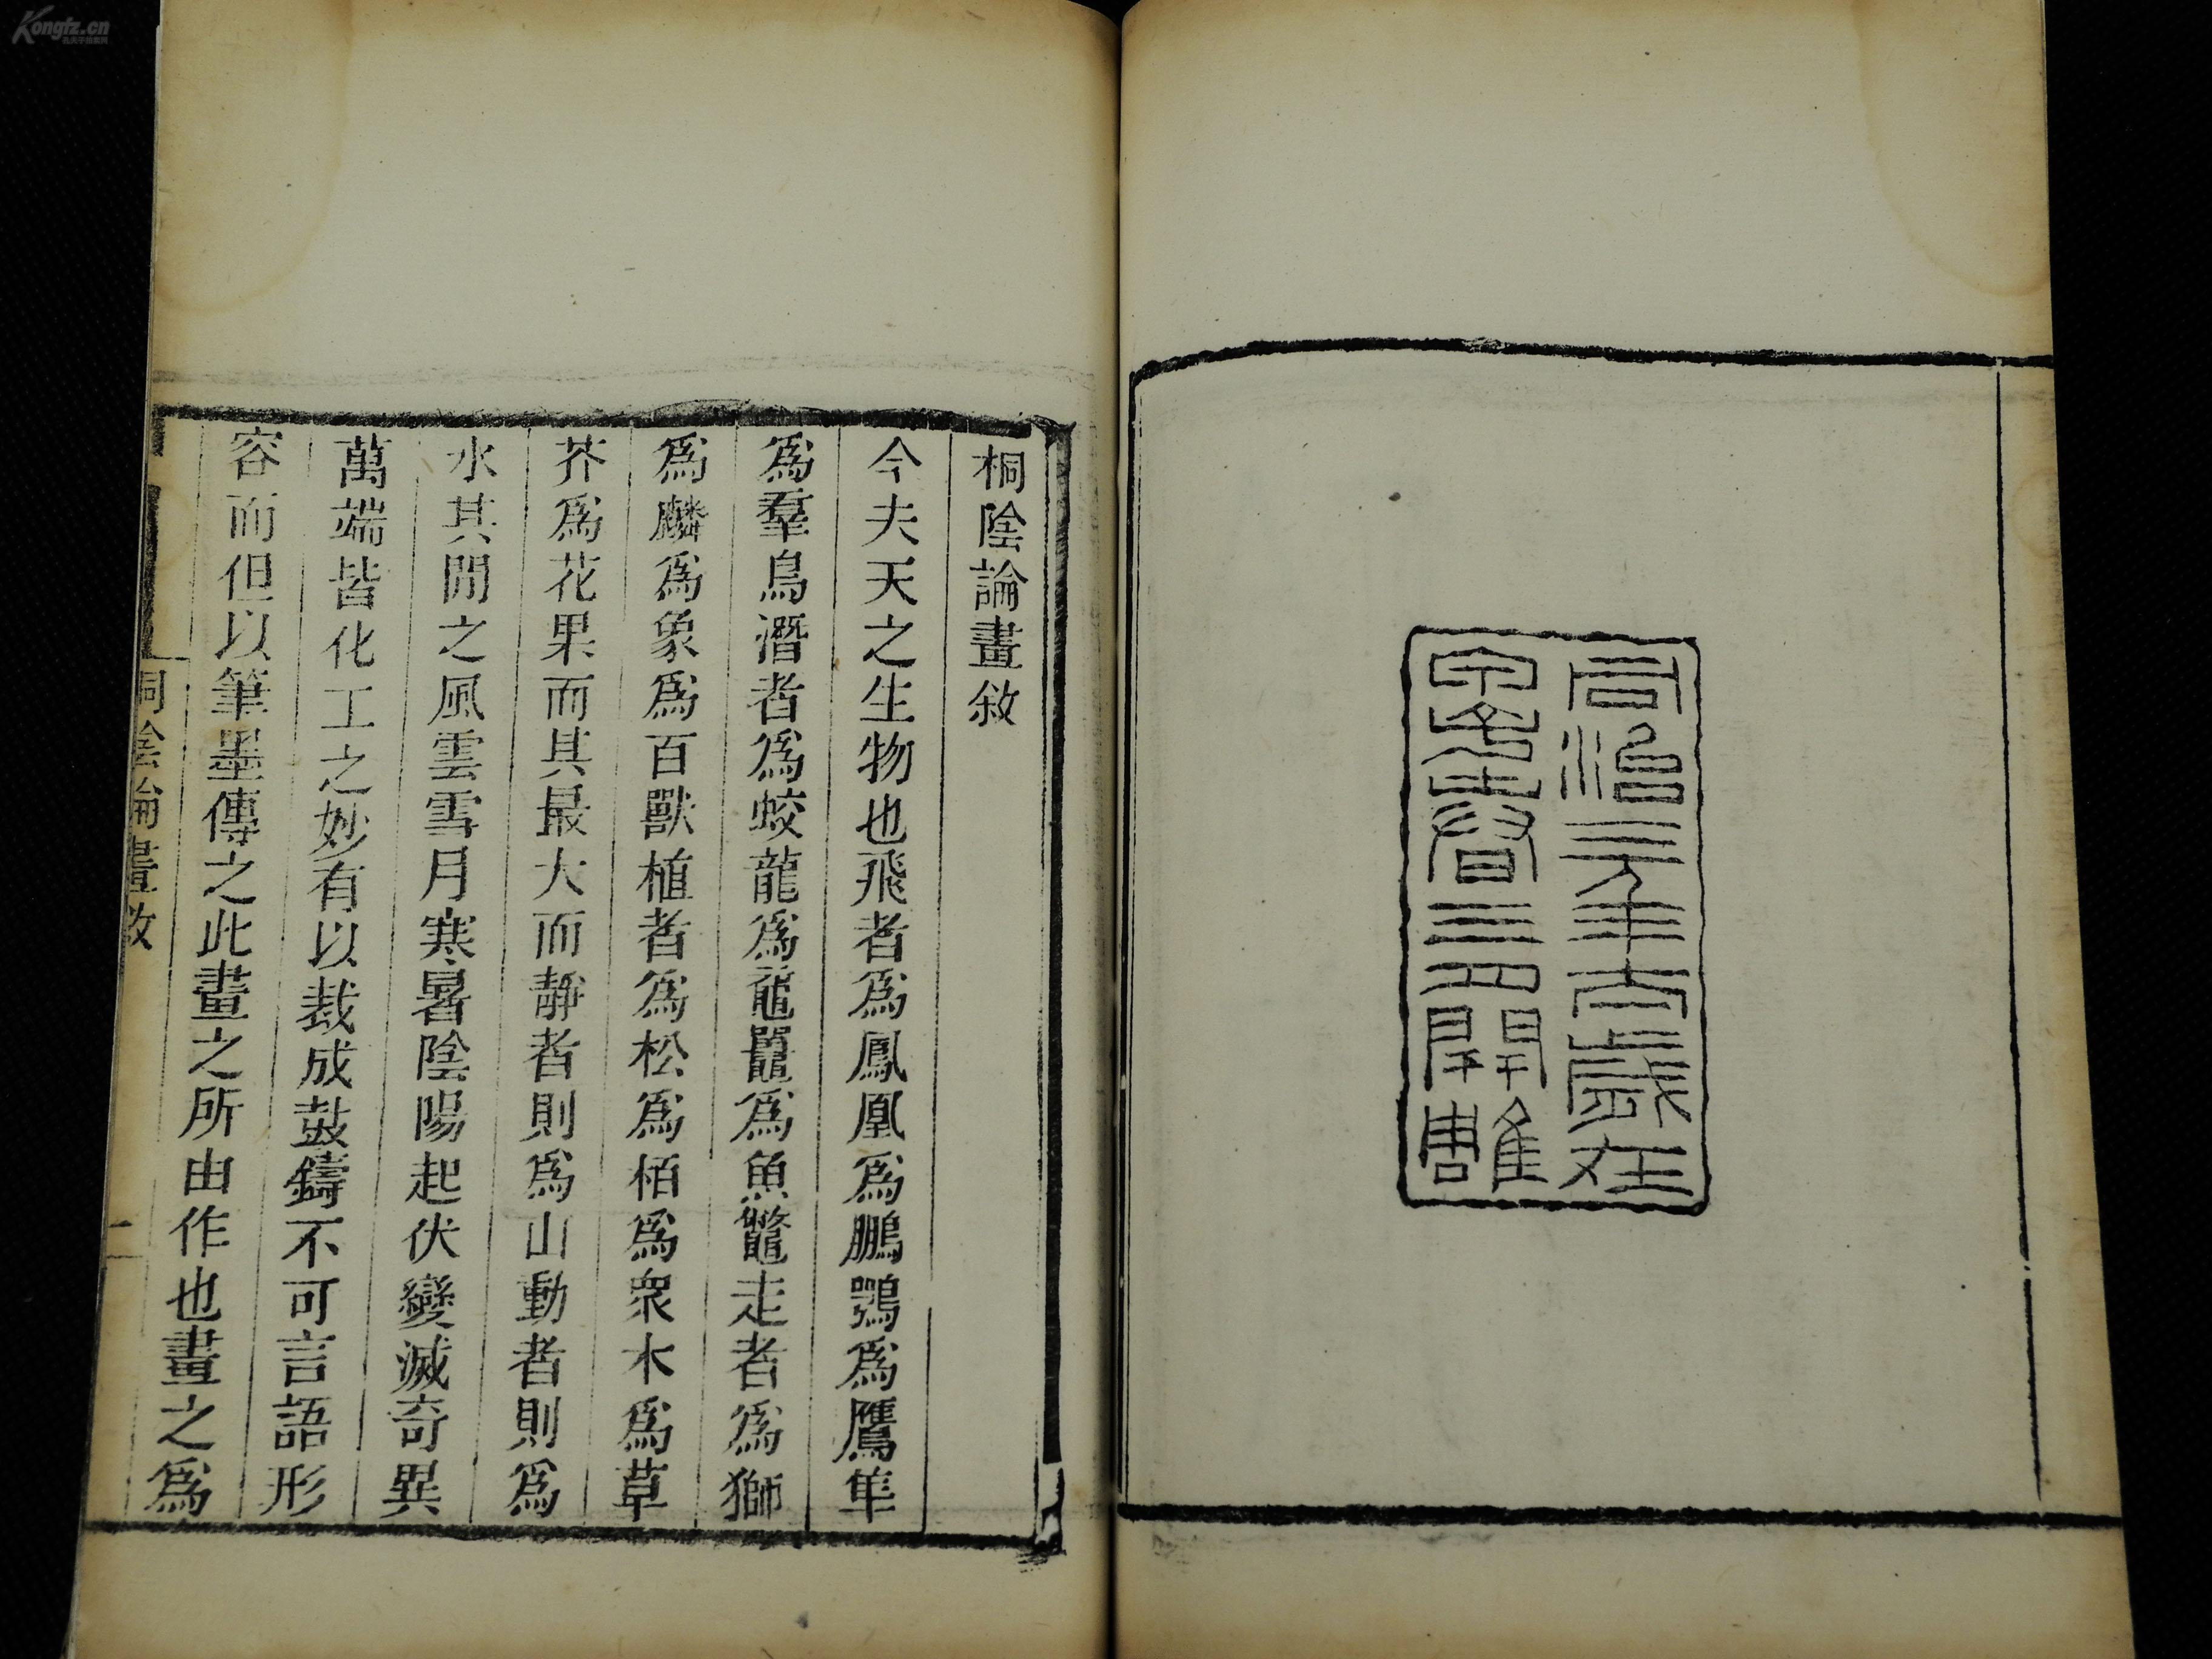 Kongfz.cn
同治三年太歲在
甲子春三月開雕
桐陰論畫敘
今夫天之生物也飛者爲鳳凰爲鵬鶚爲鷹隼
爲羣鳥潛者爲蛟龍爲黿鼉爲魚鼈走者爲獅
爲麟爲象爲百獸植者爲松爲栢爲眾木爲草
芥爲花果而其最大而靜者則爲山動者則爲
水其閒之風雲雪月寒暑陰陽起伏變滅奇異
萬端皆化工之妙有以裁成鼓鑄不可言語形
容而但以筆墨傳之此畫之所由作也畫之爲
桐陰論畫敘
二